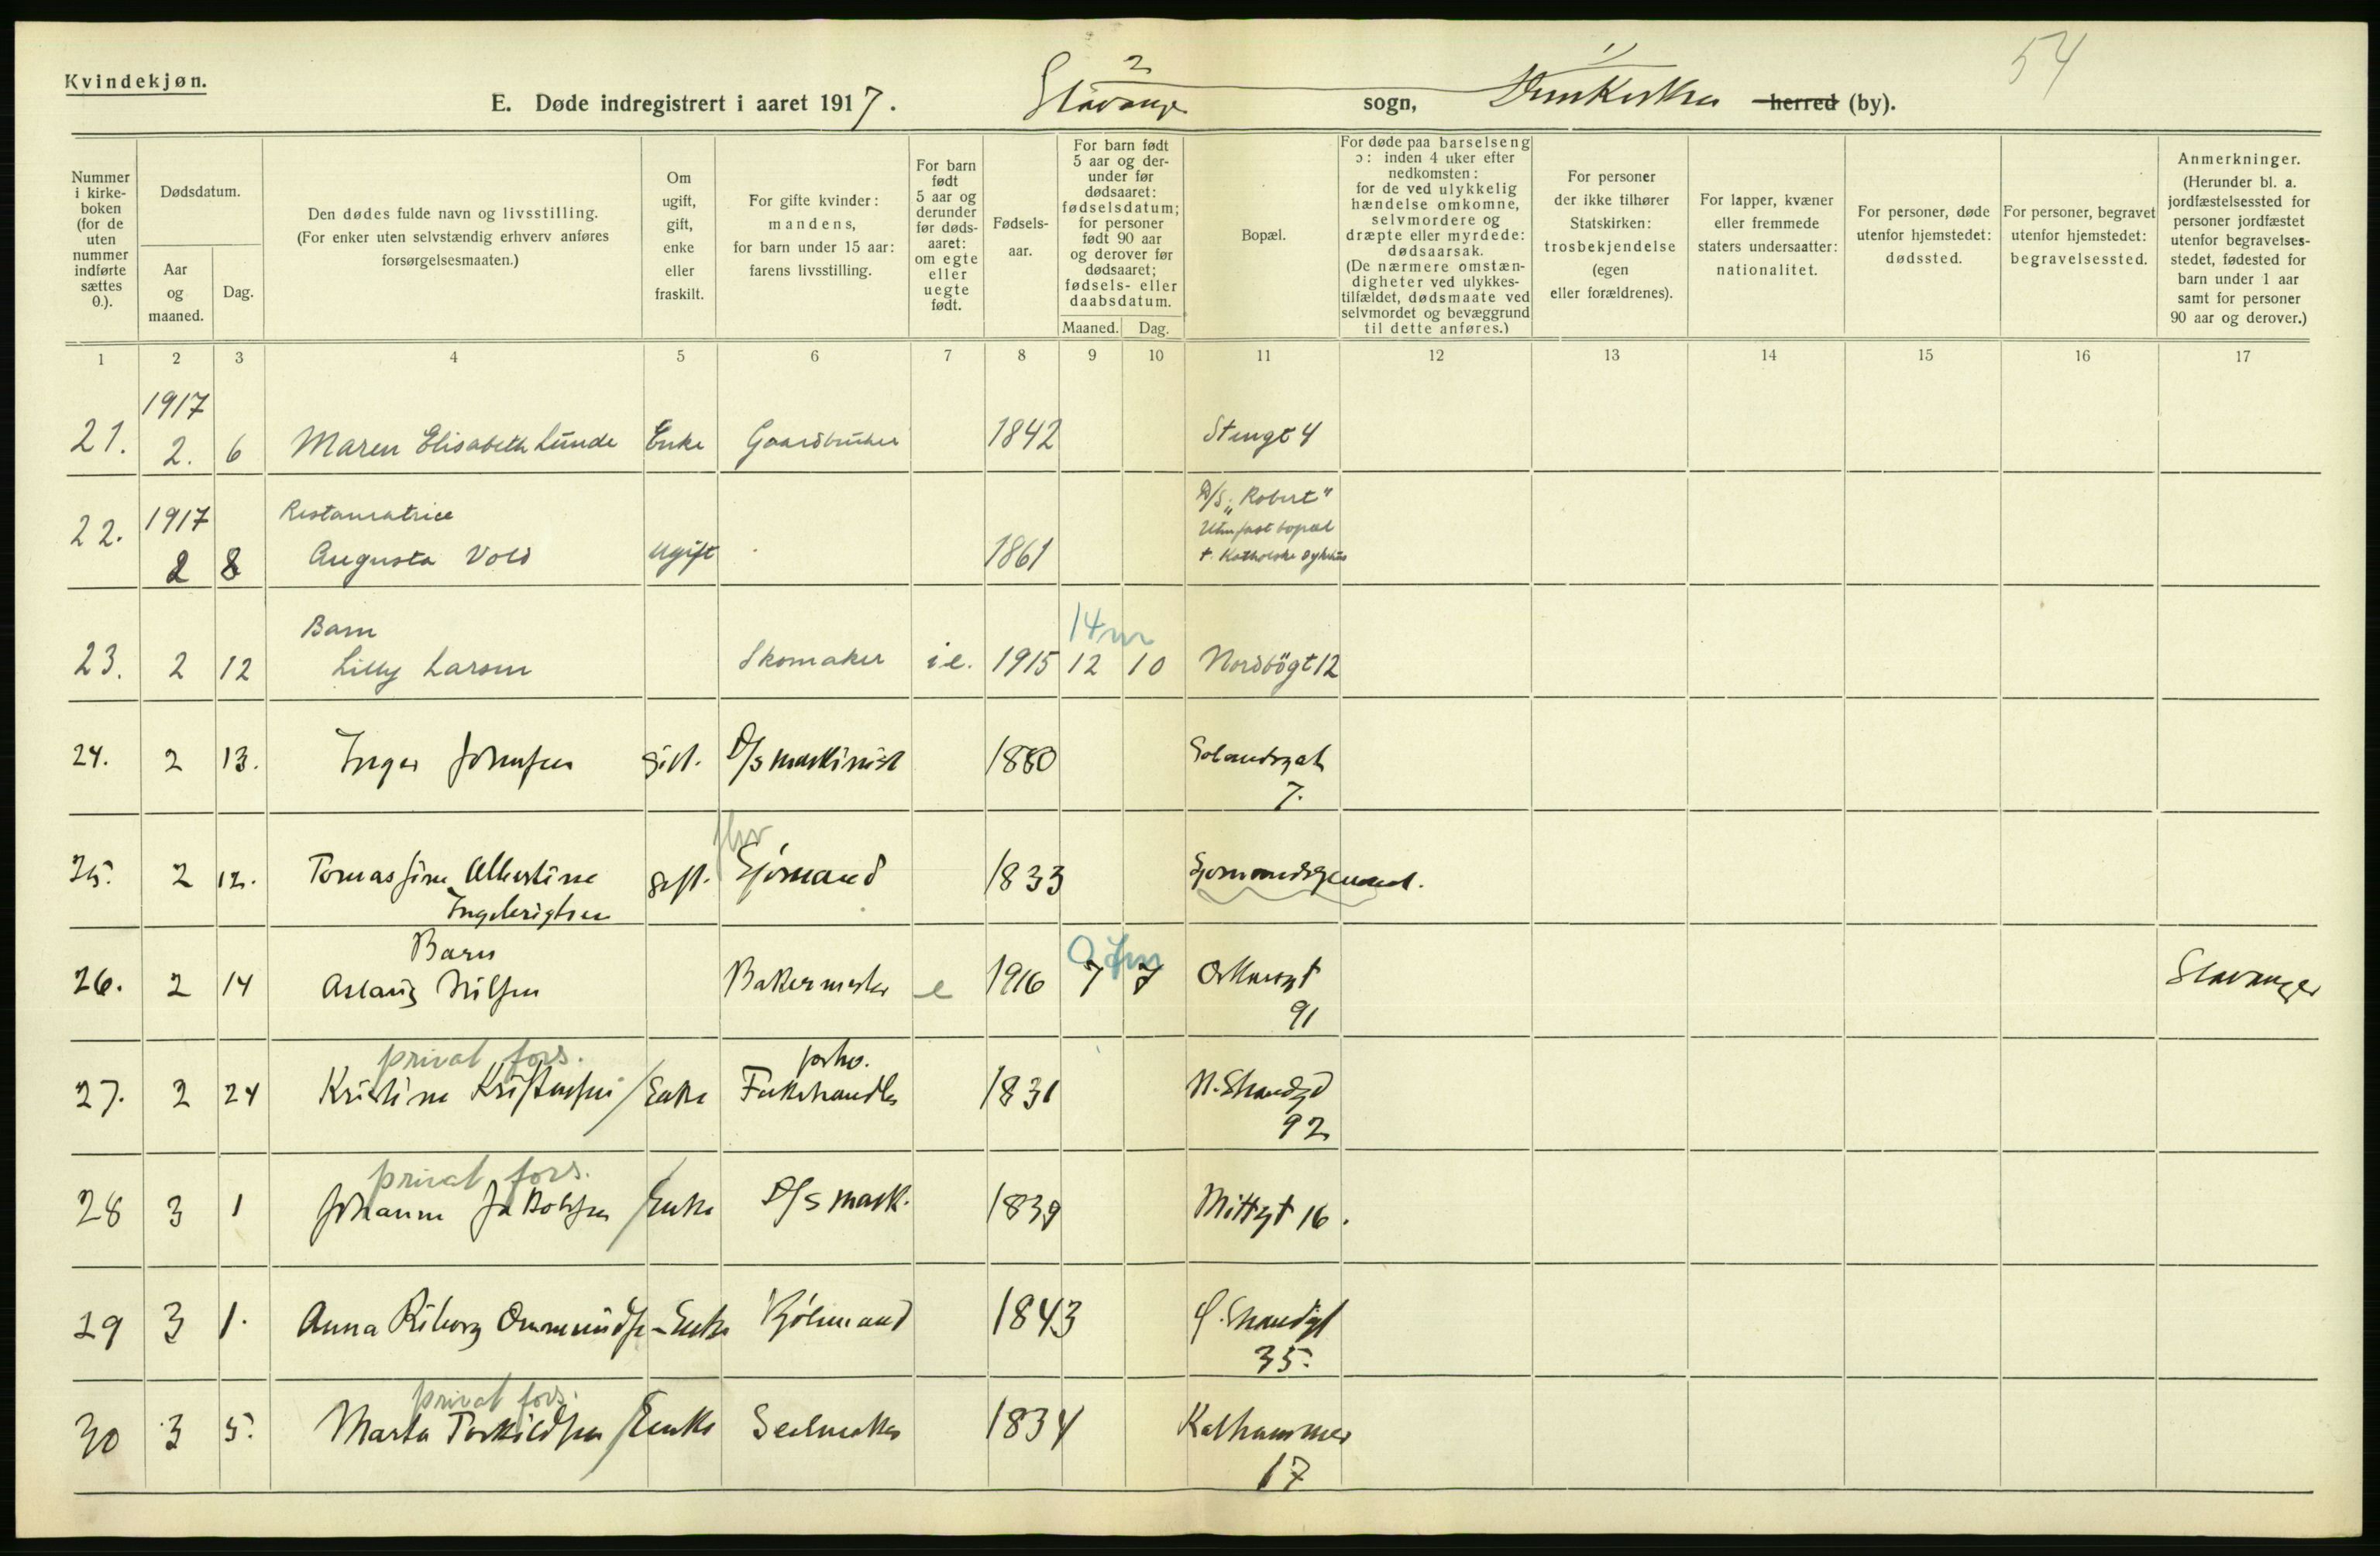 Kvindekjøn.
54
E. Døde indregistrert i aaret 1917. Stavanger 2 sogn, herred (by).
Nummer i kirkeboken (for de uten nummer indførte sættes 0.).
Dødsdatum.
Aar og maaned.
Dag.
Den dødes fulde navn og livsstilling.
(For enker uten selvstændig erhverv anføres forsørgelsesmaaten.)
Om ugift, gift, enke eller fraskilt.
For gifte kvinder: mandens, for barn under 15 aar: farens livsstilling.
For barn født 5 aar og derunder før dødsaaret: om egte eller uegte født.
Fødselsaar.
For barn født 5 aar og derunder før dødsaaret: fødselsdatum; for personer født 90 aar og derover før dødsaaret; fødsels- eller daabsdatum.
Maaned. Dag.
Bopæl.
For døde paa barselseng ɔ: inden 4 uker efter nedkomsten: for de ved ulykkelig hændelse omkomne, selvmordere og dræpte eller myrdede: dødsaarsak. (De nærmere omstændigheter ved ulykkestilfældet, dødsmaate ved selvmordet og bevæggrund til dette anføres.)
For personer der ikke tilhører Statskirken: trosbekjendelse (egen eller forældrenes).
For lapper, kvæner eller fremmede staters undersaatter: nationalitet.
For personer, døde utenfor hjemstedet: dødssted.
For personer, begravet utenfor hjemstedet: begravelsessted.
Anmerkninger. (Herunder bl. a. jordfæstelsessted for personer jordfæstet utenfor begravelsesstedet, fødested for barn under 1 aar samt for personer 90 aar og derover.)
1 2 3 4 5 6 7 8 9 10 11 12 13 14 15 16 17
1917
21. 2. 6 Maren Elisabeth Lunde Enke Gaardbruker 1842 Stengt 4
1917 Restauratrice D/S "Robert"
Uten fast bopæl
22. 2 8 Augusta Vold ugift 1861 t. Katholske sykhus
Barn 14 m
23. 2 12 Lilly Larsen Skomaker i.e. 1915 12 10 Nordbögt 12
24. 2 13. Inger Johnsen gift. D/s maskinist 1880
7.
25. 2 12. Tomassine Albertine gift. Sjømand 1833
Ingebrigtsen
Barn 7m
26. 2 14 Aslaug Nilsen Bakermester e 1916 7 7 Oskarsgt Stavanger
91
privat fors. forhv.
27. 2 24 Kristine Kristensen Enke 1831 N. Strandgd
92
privat fors.
28 3 1 Johanne Jakobsen Enke D/s mask. 1839 Midtgt 16.
29 3 1. Anna Riborg Ommundsen Enke 1843 Ø. Strandgt
35.
privat fors.
30 3 5. Marta Torkildsen Enke Seilmaker 1834 Kalhammer
17